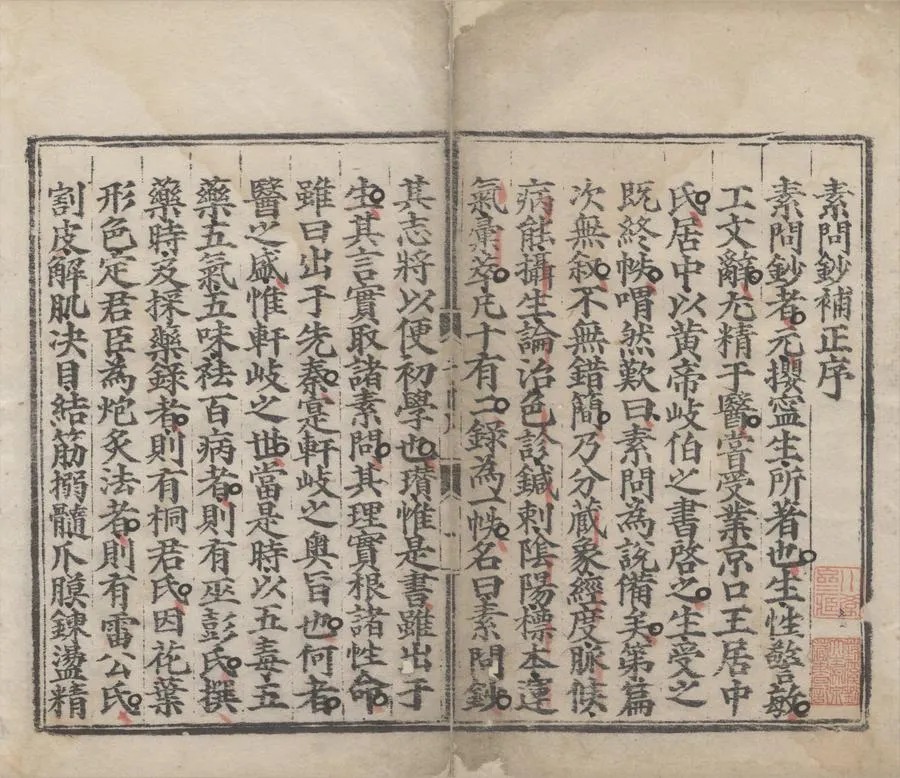 素問鈔補正序
素問鈔者元攖寧生所著也生性警敏
工文辭尤精于醫嘗受業京口王居中
氏居中以黃帝岐伯之書啓之生受之
既終帙喟然歎曰素問為說備矣第篇
次無叙不無錯簡乃分藏象經度脈候
病能攝生論治色診鍼刺陰陽標本運
氣彙萃凡十有二錄為一帙名曰素問鈔
其志將以便初學也瓚惟是書雖出于
生其言實取諸素問其理實根諸性命
雖曰出于先秦寔軒岐之奥旨也何者
醫之盛惟軒岐之世當是時以五毒五
藥五氣五味祛百病者則有巫彭氏撰
藥時及採藥錄者則有桐君氏因花葉
形色定君臣為炮炙法者則有雷公氏
割皮解肌決目結筋搦髓爪膜鍊盪精